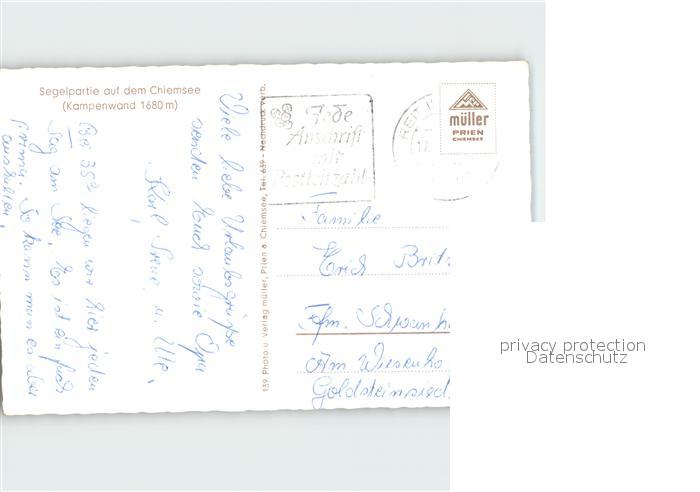 Segelpartie auf dem Chiemsee
(Kampenwand 1680 m)
Viele liebe Urlaubsgrüße
senden Euch sowie Opa
Karl, Irene, u. Ute.
Bei 35° liegen wir hier jeden
Tag am See. Es ist einfach
prima. So kann man es aber
aushalten.
139 Photo u. Verlag müller, Prien a. Chiemsee, Tel. 639 - Nachdruck verb.
Jede
Anschrift
mit
Postleitzahl
REIT I
müller
PRIEN
CHIEMSEE
Familie
Erich Brit
Ffm. Schwanh
Am Wiesenho
Goldsteinsied
privacy protection
Datenschutz